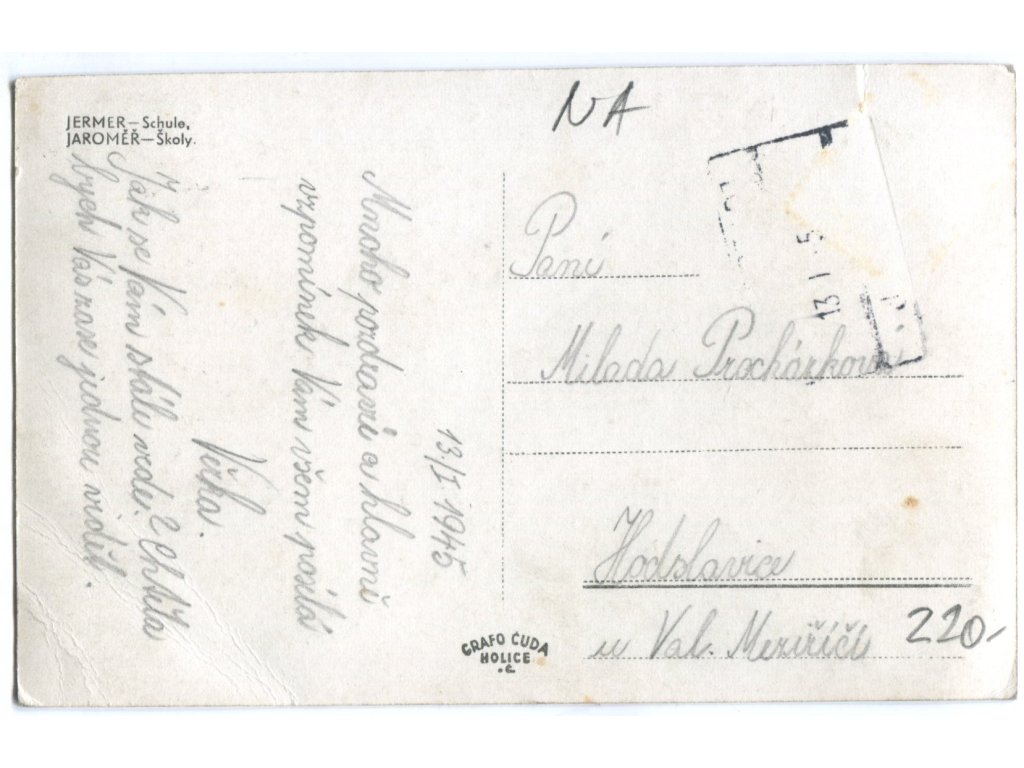 JERMER—Schule,
JAROMĚŘ—Školy.
NA
13 I 5
13./I 1945
Mnoho pozdravů a hlavně
vzpomínek Vám všem posílá
Věrka.
Jak se Vám stále vede? Chtěla
bych Vás zase jednou vidět.
Paní
Milada Procházková
Hodslavice
u Val. Meziříčí
220-
GRAFO ČUDA
HOLICE